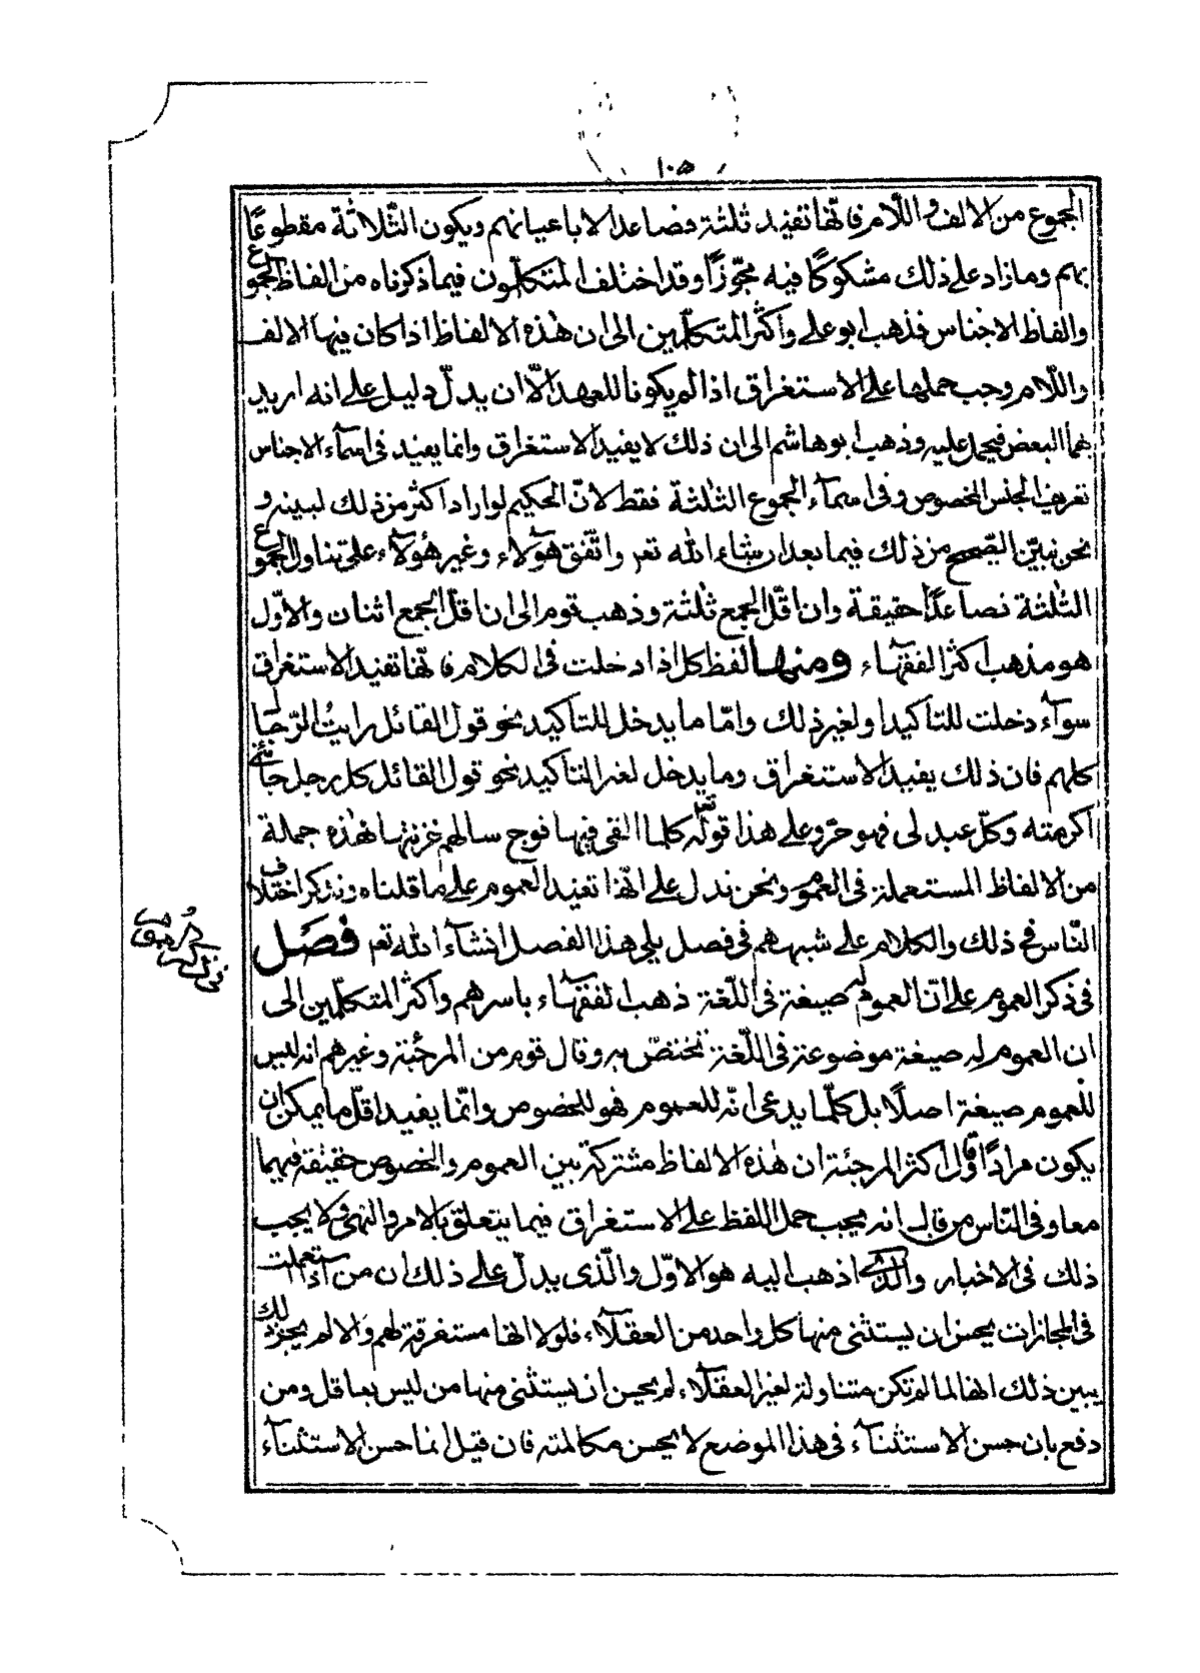 ١٠٥
الجموع من الالف واللّام فانّها تفيد ثلثة فصاعدا لا باعيانهم ويكون الثّلاثة مقطوعًا
بهم وما زاد على ذلك مشكوكًا فيه مجوّزًا وقد اختلف المتكلّمون فيما ذكرناه من الفاظ الجموع
والفاظ الاجناس فذهب ابو على واكثر المتكلّمين الى ان هذه الالفاظ اذا كان فيها الالف
واللّام وجب حملها على الاستغراق اذا لم يكونا للعهد الّا ان يدلّ دليل على انه اريد
بهما البعض فيحمل عليه وذهب ابو هاشم الى ان ذلك لا يفيد الاستغراق وانما يفيد فى اسمآء الاجناس
تعريف الجنس المخصوص وفى اسمآء الجموع الثلثة فقط لانّ الحكيم لو اراد اكثر من ذلك لبينه و
نحن نبيّن الصّحيح من ذلك فيما بعد ان شاء الله تعم واتّفق هؤلاء وغير هؤلاء على تناول الجموع
الثلثة فصاعدًا حقيقة وان اقلّ الجمع ثلثة وذهب قوم الى ان اقل الجمع اثنان والاوّل
هو مذهب اكثر الفقهآء ومنها لفظ كل اذا دخلت فى الكلام فانّها تفيد الاستغراق
سوآء دخلت للتاكيد او لغير ذلك وامّا ما يدخل للتاكيد نحو قول القائل رايتُ الرّجال
كلهم فان ذلك يفيد الاستغراق وما يدخل لغير التاكيد نحو قول القائل كل رجل جائنى
اكرمته وكلّ عبد لى فهو حرّ وعلى هذا قوله تعم كلما القى فيها فوج سالهم خزنتها فهذه جملة
من الالفاظ المستعملة فى العموم ونحن ندل على انّها تفيد العموم على ما قلناه ونذكر اختلاف
النّاس فى ذلك والكلام على شبههم فى فصل يلى هذا الفصل انشآء الله تعم فصل
فى ذكر العموم على انّ العموم له صيغة فى اللّغة ذهب الفقهآء باسرهم واكثر المتكلّمين الى
ان العموم له صيغة موضوعة فى اللّغة تختصّ به وقال قوم من المرجئة وغيرهم انه ليس
للعموم صيغة اصلًا بل كلّما يدعى انّه للعموم فهو للخصوص وانّما يفيد اقلّ ما يمكن ان
يكون مرادًا وقال اكثر المرجئة ان هذه الالفاظ مشتركة بين العموم والخصوص حقيقة فيهما
معا وفى النّاس من قال انه يجب حمل اللفظ على الاستغراق فيما يتعلق بالامر والنهى ولا يجب
ذلك فى الاخبار والّذى اذهب اليه هو الاوّل والّذى يدلّ على ذلك ان من اذا استعملت
فى المجازات يحسن ان يستثنى منها كل واحد من العقلآء فلولا انها مستغرقة لهم والا لم يجز ذلك
يبين ذلك انها لما لم تكن متناولة لغير العقلآء لم يحسن ان يستثنى منها من ليس بعاقل ومن
دفع بان حسن الاستثنآء فى هذا الموضع لا يحسن مكالمته فان قيل انما حسن الاستثنآء